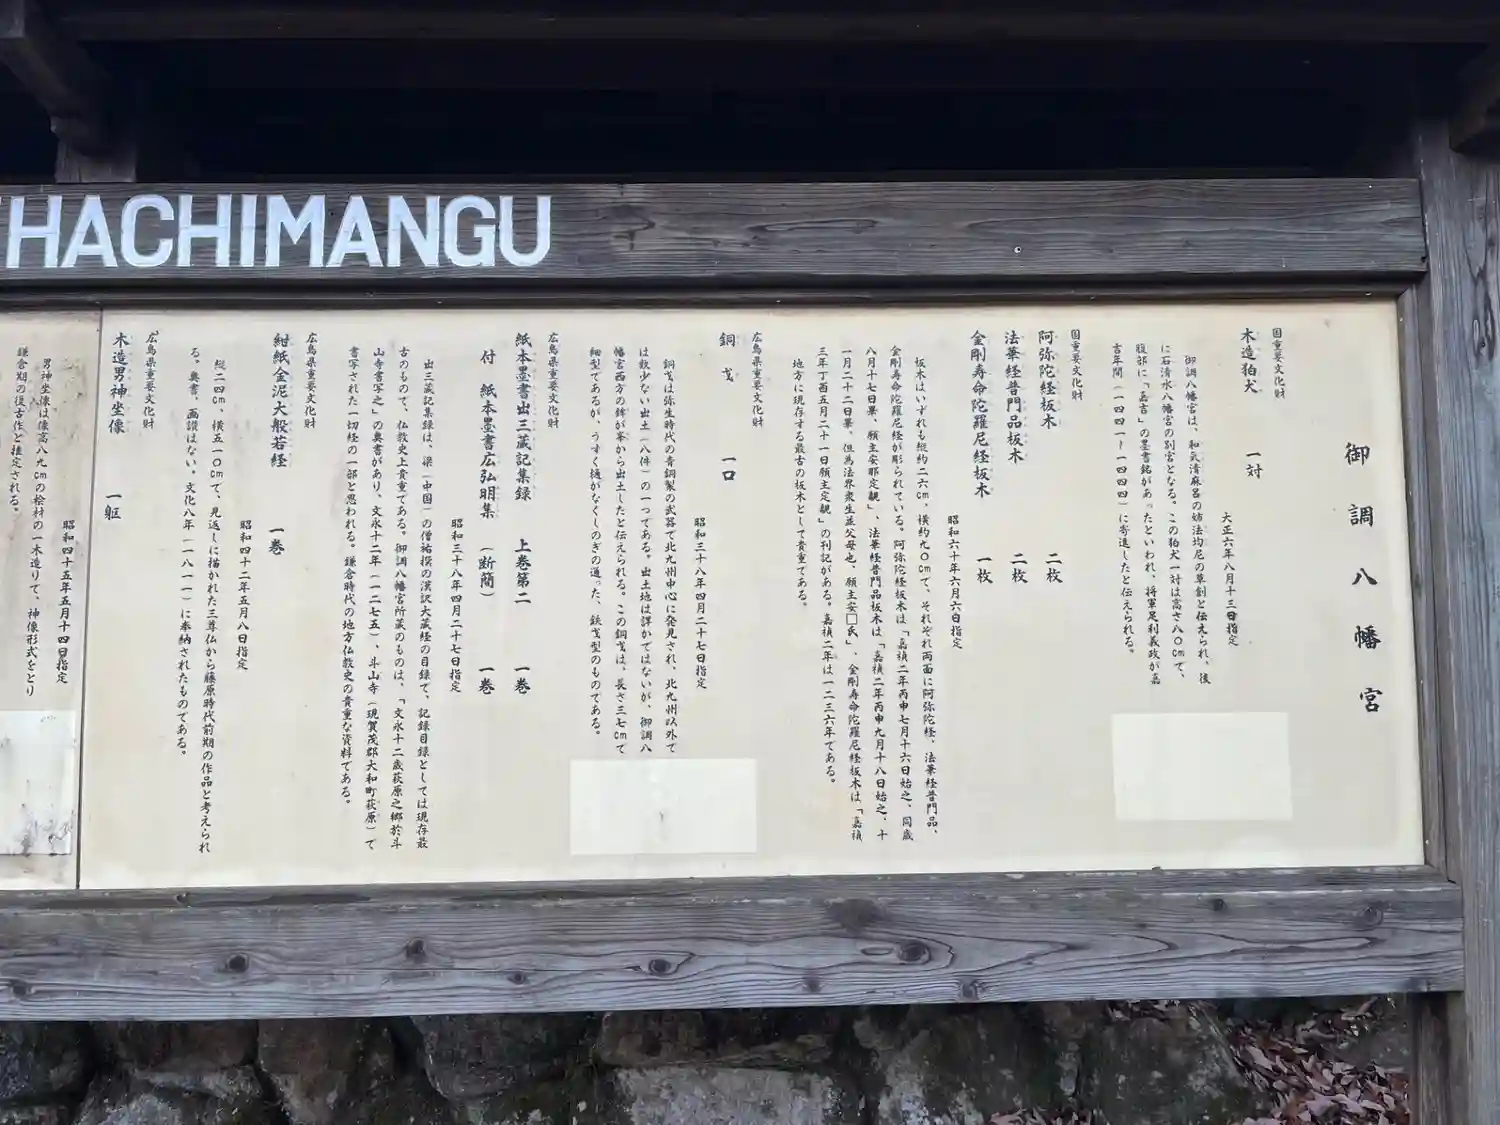 HACHIMANGU
御調八幡宮
国重要文化財
木造狛犬 一対
大正六年八月十三日指定
御調八幡宮は、和気清麻呂の姉法均尼の草創と伝えられ、後
に石清水八幡宮の別宮となる。この狛犬一対は高さ八〇cmで、
腹部に「嘉吉」の墨書銘があったといわれ、将軍足利義政が嘉
吉年間(一四四一〜一四四四)に寄進したと伝えられる。
国重要文化財
阿弥陀経板木 二枚
法華経普門品板木 二枚
金剛寿命陀羅尼経板木 一枚
昭和六十年六月六日指定
板木はいずれも縦約二六cm、横約九〇cmで、それぞれ両面に阿弥陀経、法華経普門品、
金剛寿命陀羅尼経が彫られている。阿弥陀経板木は「嘉禎二年丙申七月十六日始之、同歳
八月十七日畢、願主安那定親」、法華経普門品板木は「嘉禎二年丙申九月十八日始之、十
一月二十二日畢、但為法界衆生並父母也、願主安□氏」、金剛寿命陀羅尼経板木は「嘉禎
三年丁酉五月二十一日願主定親」の刊記がある。嘉禎二年は一二三六年である。
地方に現存する最古の板木として貴重である。
広島県重要文化財
銅戈 一口
昭和三十八年四月二十七日指定
銅戈は弥生時代の青銅製の武器で北九州中心に発見され、北九州以外で
は数少ない出土(八件)の一つである。出土地は詳かではないが、御調八
幡宮西方の鉾が峯から出土したと伝えられる。この銅戈は、長さ三七cmで
細型であるが、うすく樋がなくしのぎの通った、鉄戈型のものである。
広島県重要文化財
紙本墨書出三蔵記集録 上巻第二 一巻
付 紙本墨書広弘明集 (断簡) 一巻
昭和三十八年四月二十七日指定
出三蔵記集録は、梁(中国)の僧祐撰の漢訳大蔵経の目録で、記録目録としては現存最
古のもので、仏教史上貴重である。御調八幡宮所蔵のものは、「文永十二歳荻原之郷於斗
山寺書写之」の奥書があり、文永十二年(一二七五)、斗山寺(現賀茂郡大和町荻原)で
書写された一切経の一部と思われる。鎌倉時代の地方仏教史の貴重な資料である。
広島県重要文化財
紺紙金泥大般若経 一巻
昭和四十二年五月八日指定
縦二四cm、横五一〇cmで、見返しに描かれた三尊仏から藤原時代前期の作品と考えられ
る。奥書、画讃はない。文化八年(一八一一)に奉納されたものである。
広島県重要文化財
木造男神坐像 一躯
昭和四十五年五月十四日指定
男神坐像は像高八九cmの桧材の一木造りで、神像形式をとり
鎌倉期の復古作と推定される。